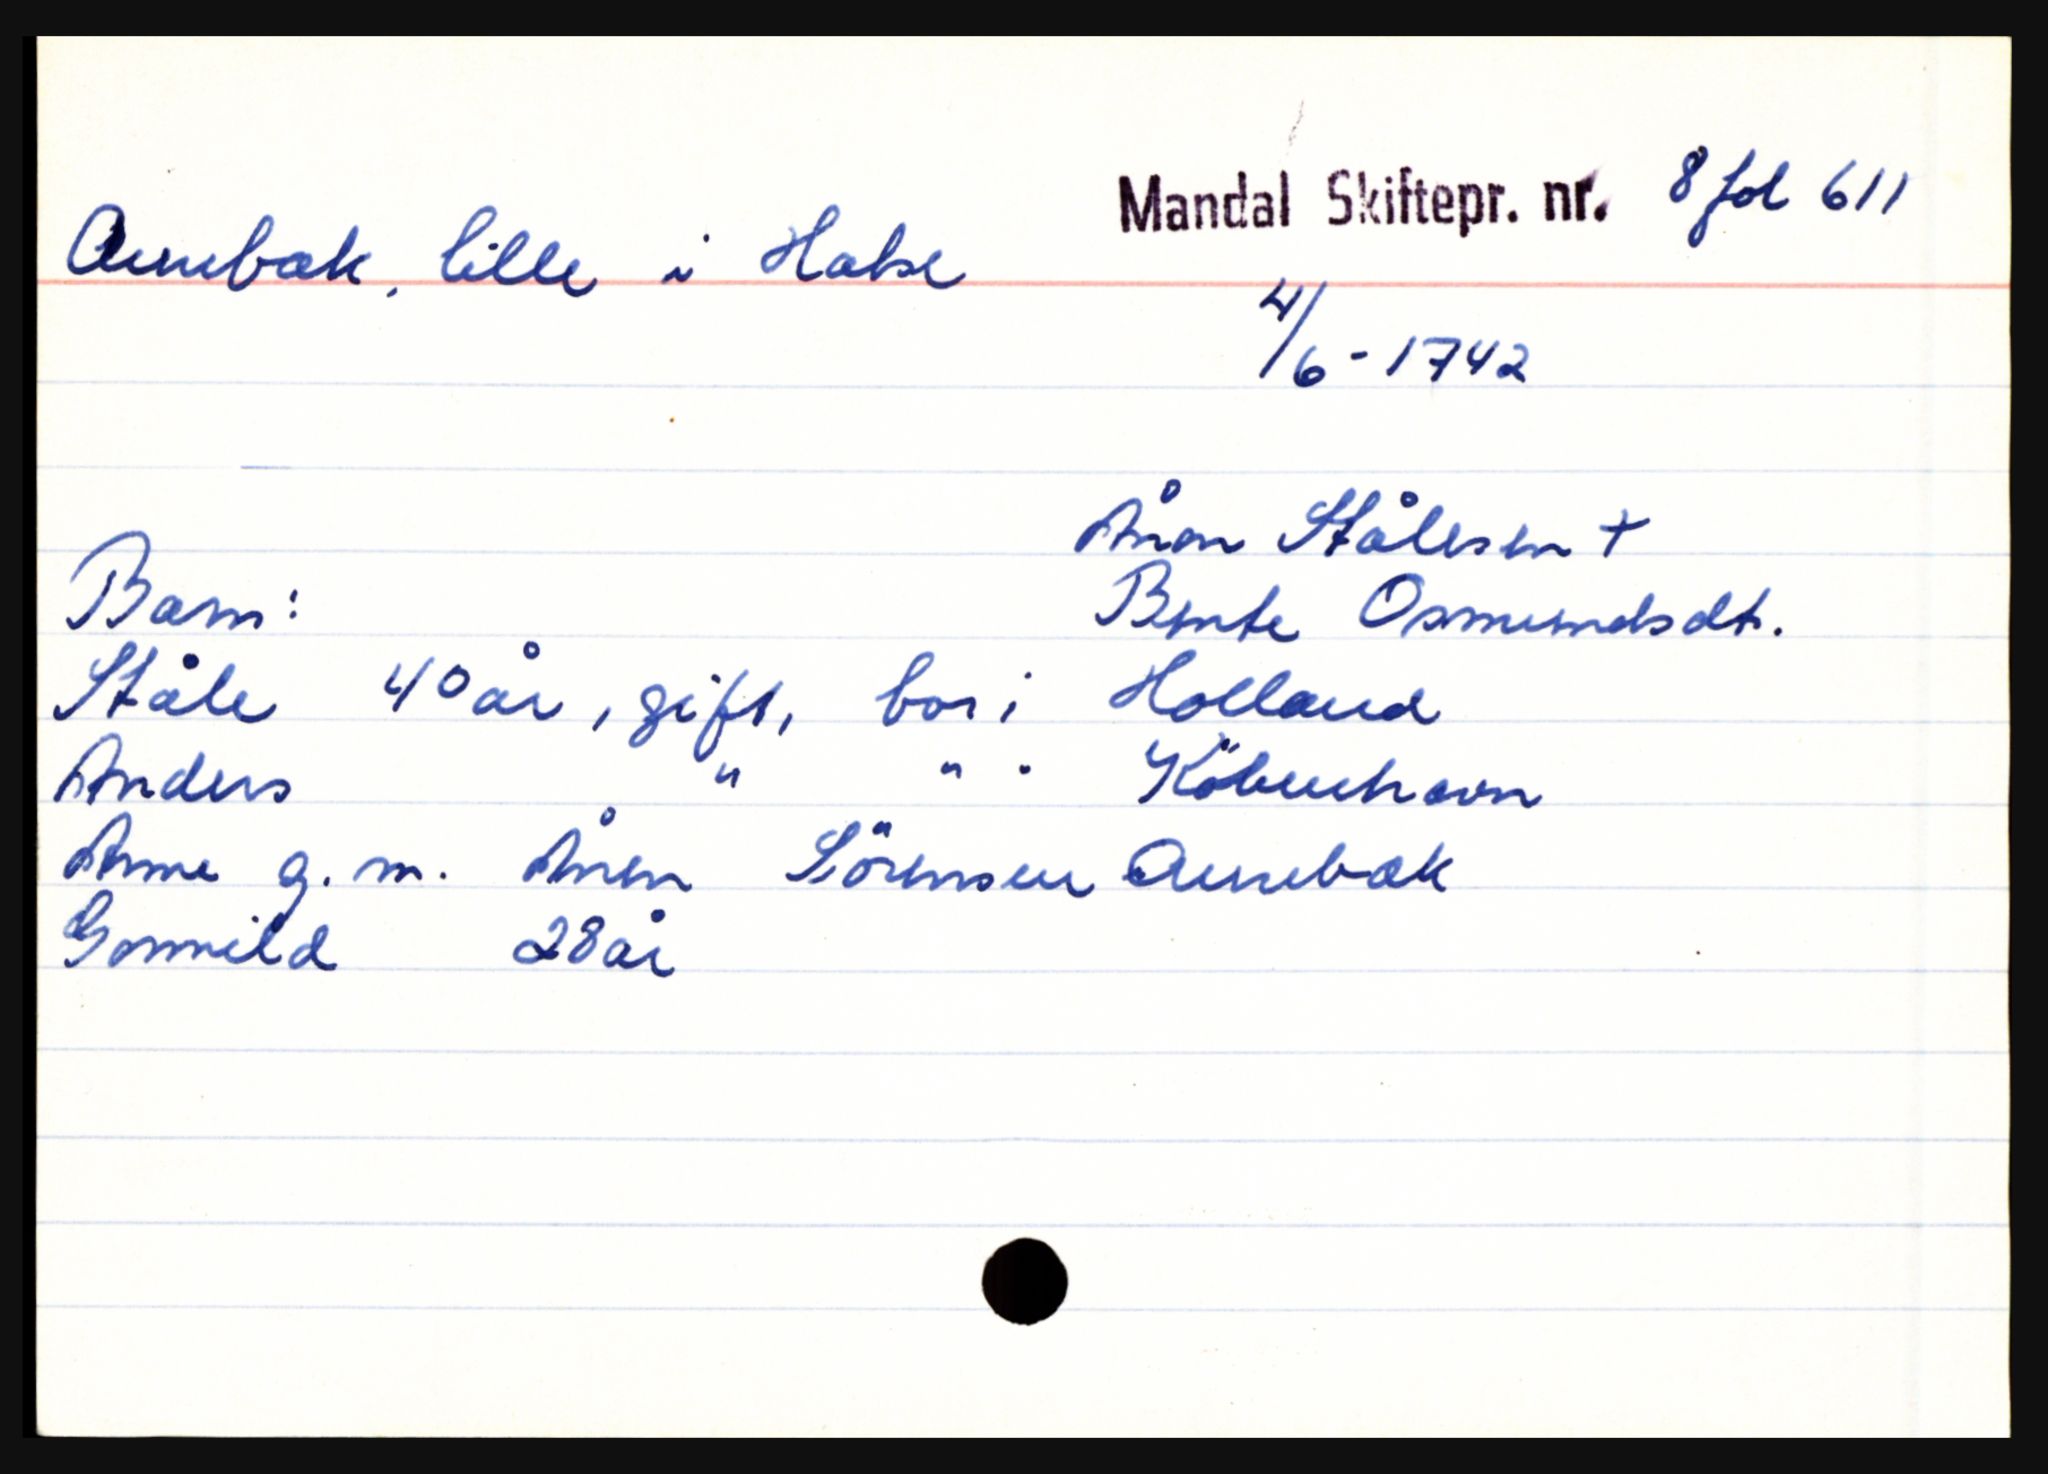 Mandal Skiftepr. nr. 8 fol 611
Aurebæk, lille i Halse
4/6-1742
Ånon Stålesen +
Barn: Bente Osmundsdt.
Ståle 40 år, gift, bor i Holland
Anders " " " Köbenhavn
Anne g. m. Ånen Sörensen Aurebæk
Gonnild 28 år